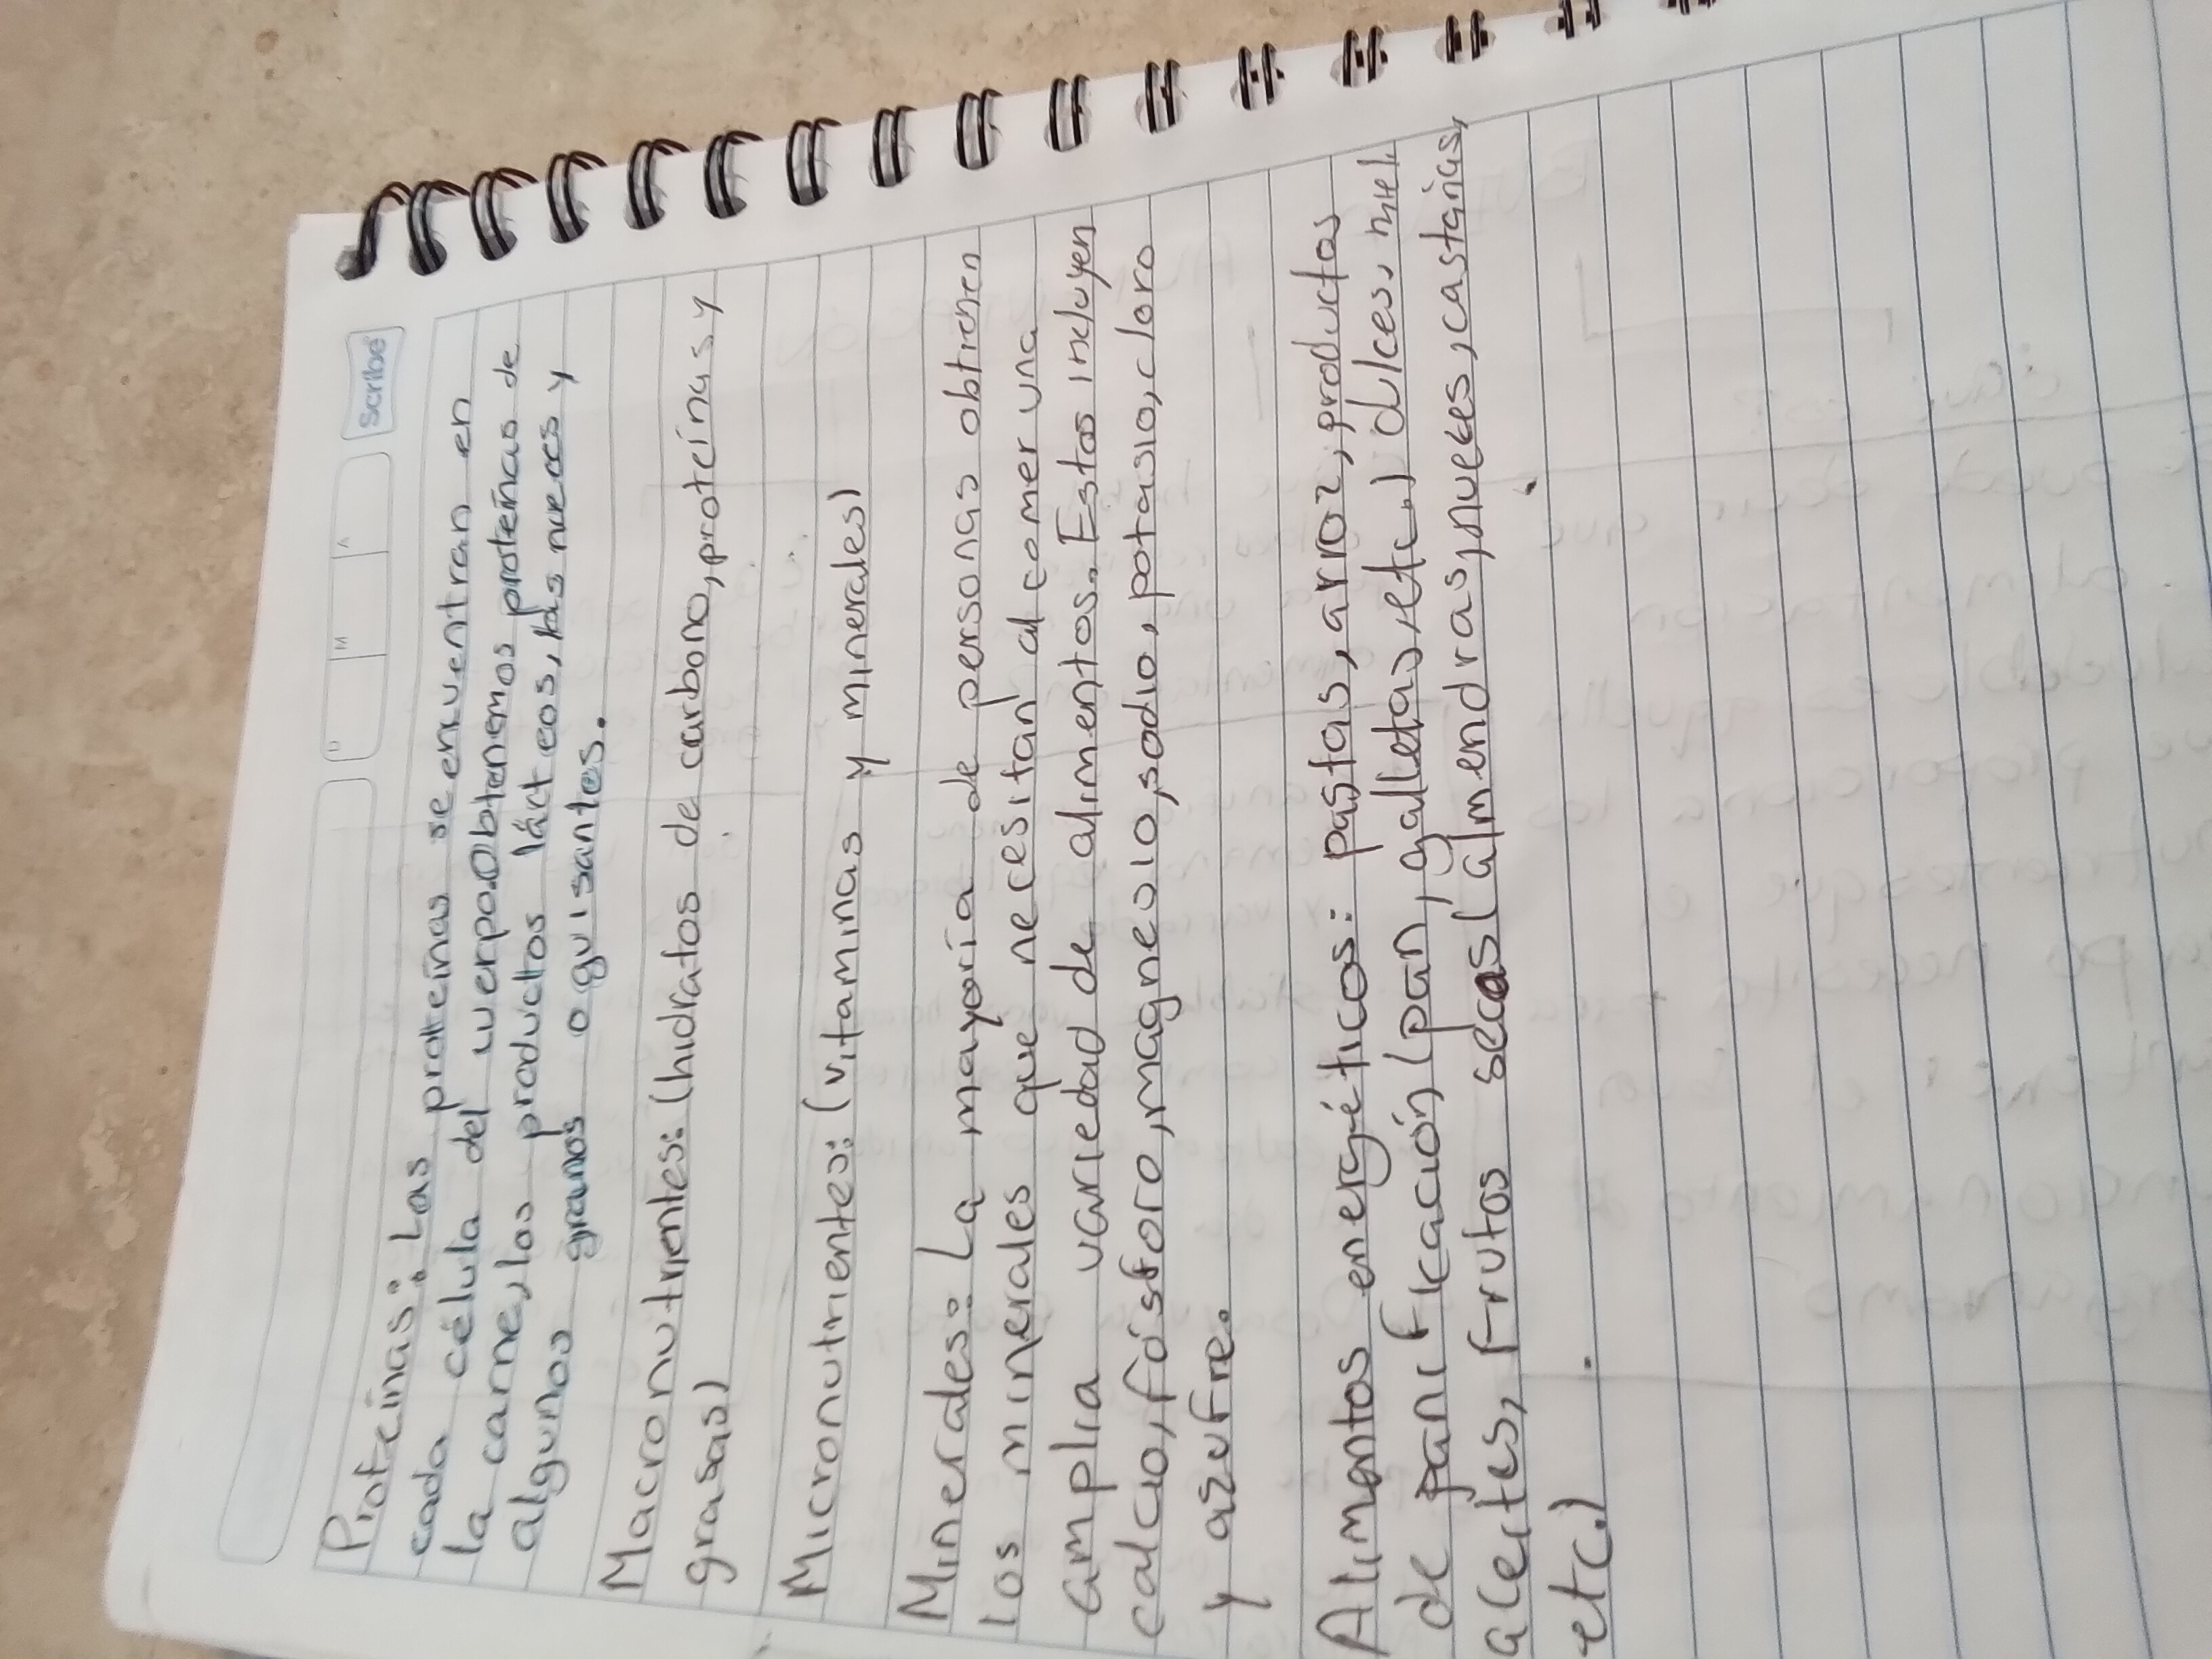 Scribe
D M A
Proteínas: Las proteínas se encuentran en
cada célula del cuerpo. Obtenemos proteínas de
la carne, los productos lácteos, las nueces y
algunos granos o guisantes.
Macronutrientes: (hidratos de carbono, proteínas y
grasas)
Micronutrientes: (vitaminas y minerales)
Minerales: La mayoría de personas obtienen
los minerales que necesitan al comer una
amplia variedad de alimentos. Estos incluyen
calcio, fósforo, magnecio, sodio, potasio, cloro
y azufre.
Alimentos energéticos: pastas, arroz, productos
de panificación (pan, galletas, etc.) dulces, miel,
aceites, frutos secos (almendras, nueces, castañas,
etc.)